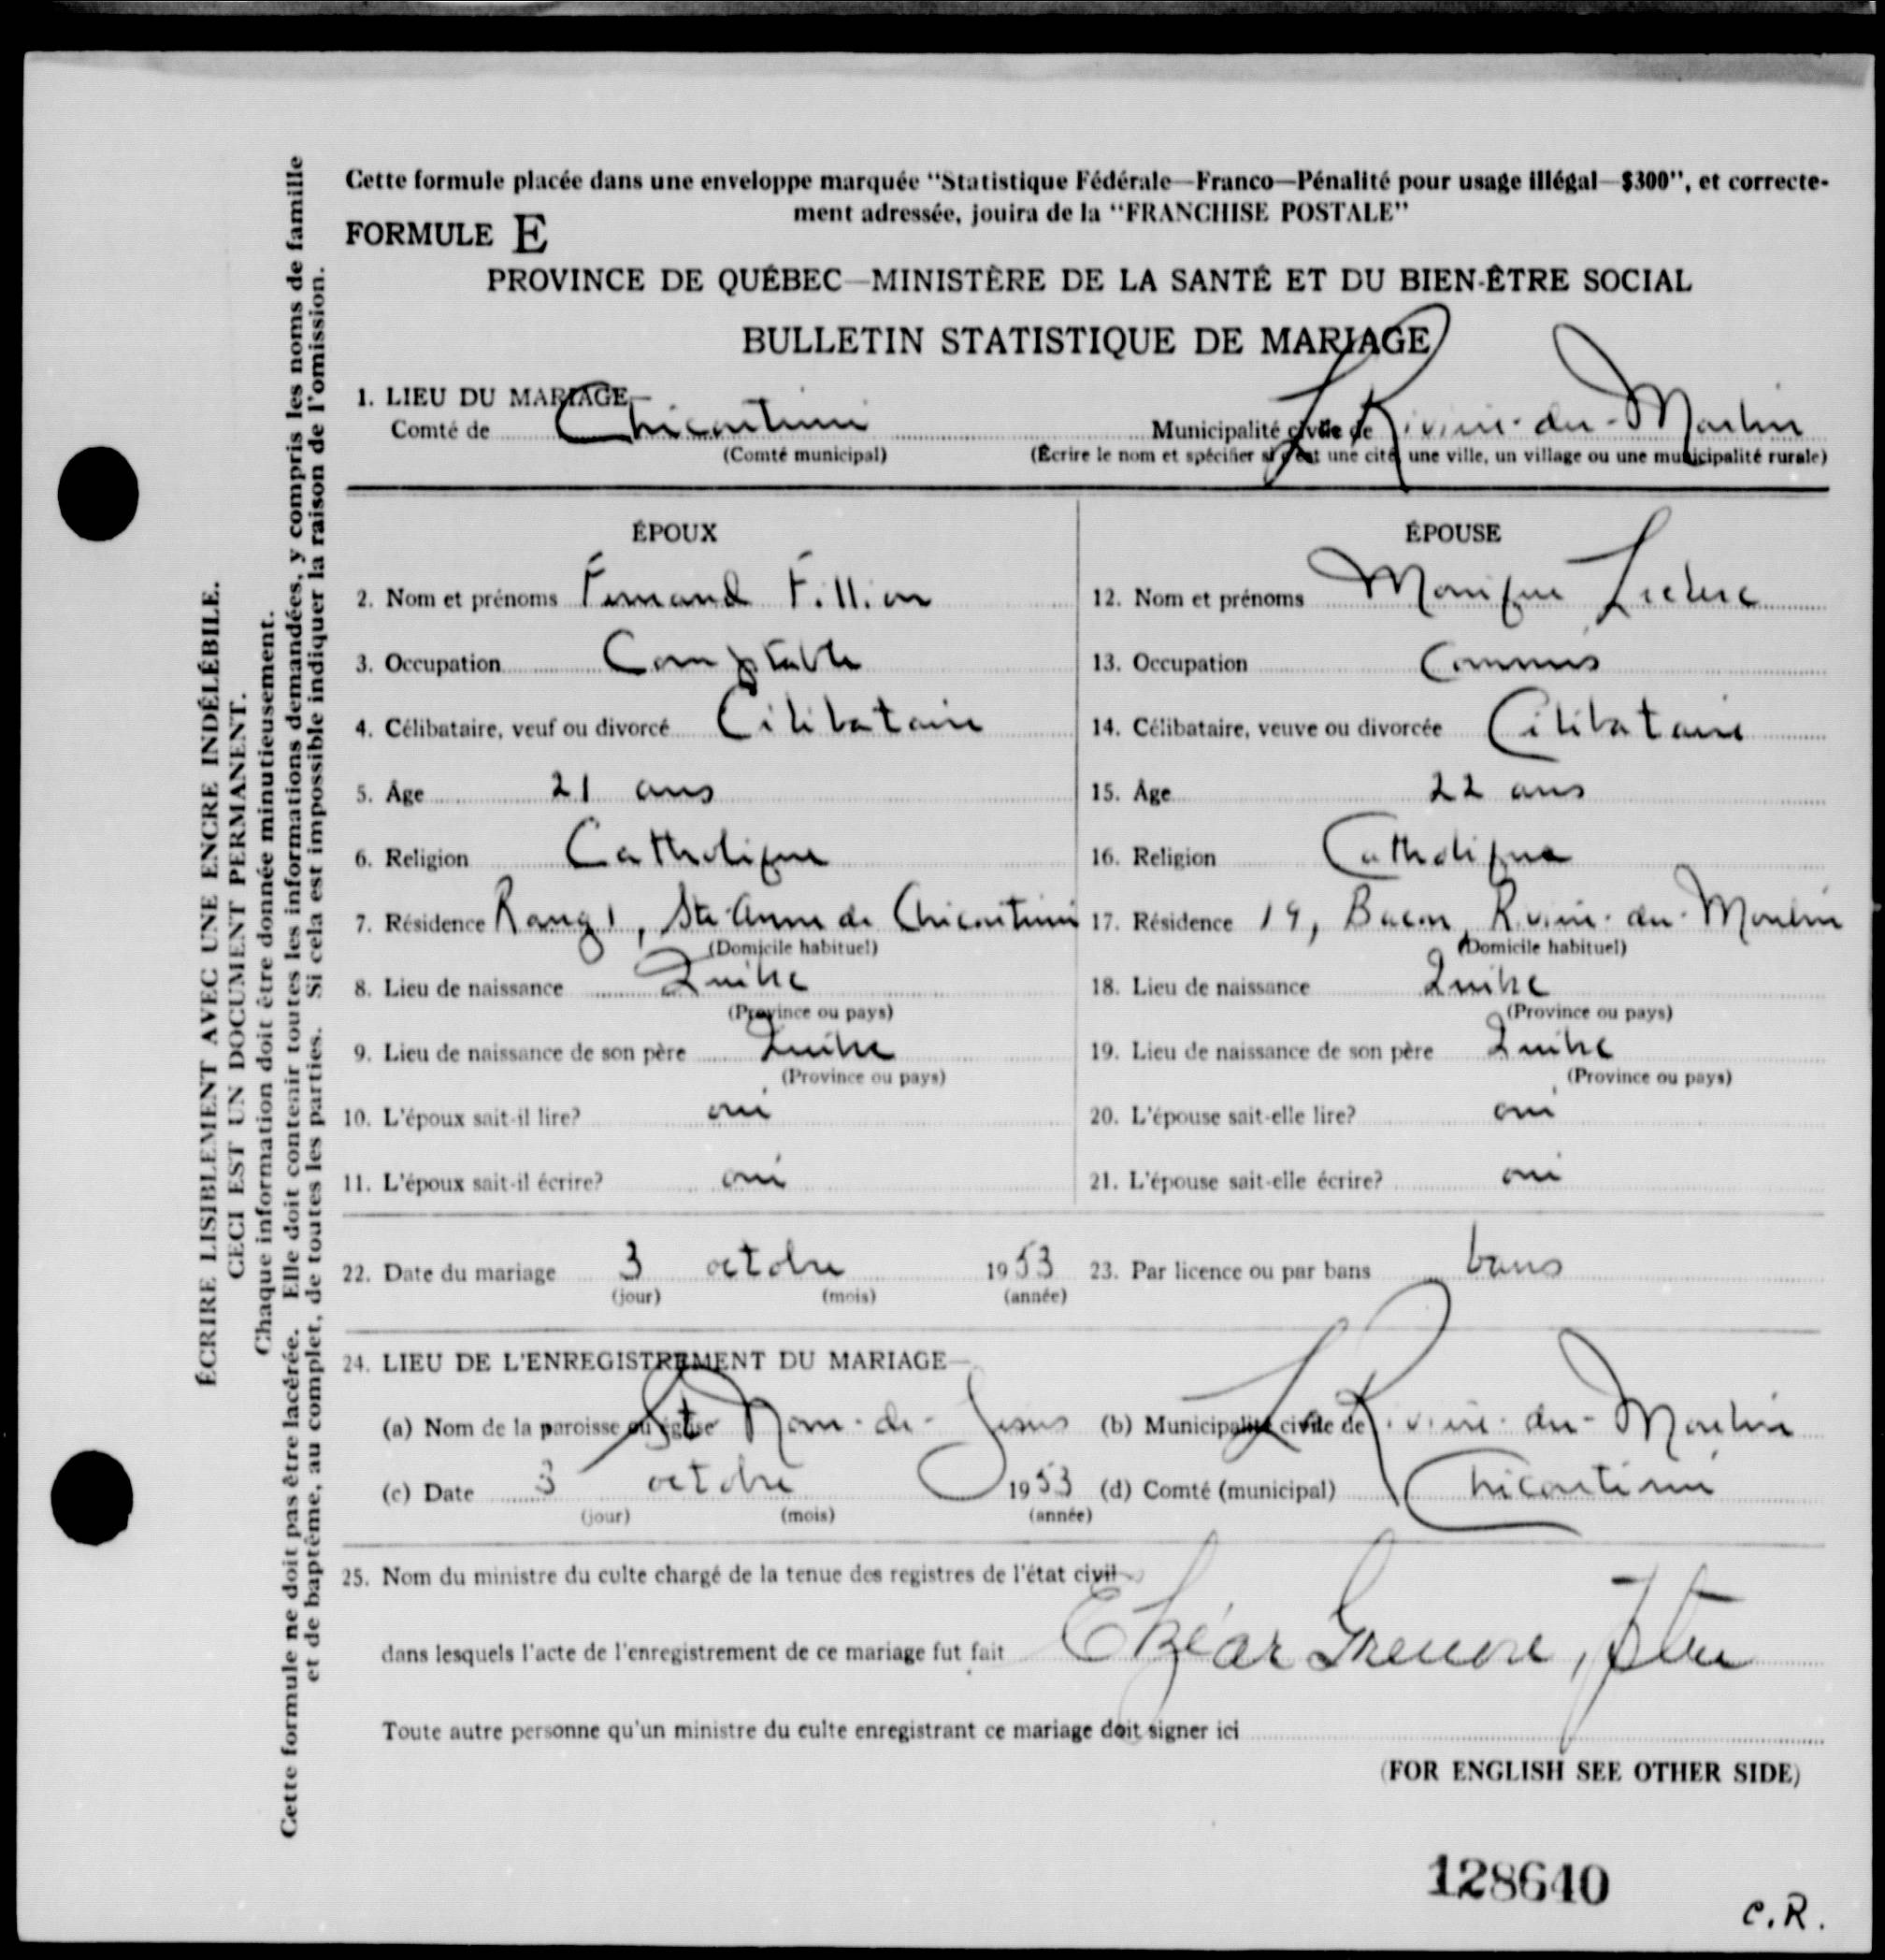 Cette formule placée dans une enveloppe marquée "Statistique Fédérale—Franco—Pénalité pour usage illégal—$300", et correcte-
ment adressée, jouira de la "FRANCHISE POSTALE"
FORMULE E
PROVINCE DE QUÉBEC—MINISTÈRE DE LA SANTÉ ET DU BIEN-ÊTRE SOCIAL
BULLETIN STATISTIQUE DE MARIAGE
1. LIEU DU MARIAGE—
Comté de Chicoutimi Municipalité civile de La Rivière-du-Moulin
(Comté municipal) (Écrire le nom et spécifier si c'est une cité, une ville, un village ou une municipalité rurale)
ÉPOUX
2. Nom et prénoms Fernand Fillion
3. Occupation Comptable
4. Célibataire, veuf ou divorcé Célibataire
5. Âge 21 ans
6. Religion Catholique
7. Résidence Rang 1, Ste-Anne de Chicoutimi
(Domicile habituel)
8. Lieu de naissance Québec
(Province ou pays)
9. Lieu de naissance de son père Québec
(Province ou pays)
10. L'époux sait-il lire? oui
11. L'époux sait-il écrire? oui
ÉPOUSE
12. Nom et prénoms Monique Leclerc
13. Occupation Commis
14. Célibataire, veuve ou divorcée Célibataire
15. Âge 22 ans
16. Religion Catholique
17. Résidence 19, Bacon, Rivière-du-Moulin
(Domicile habituel)
18. Lieu de naissance Québec
(Province ou pays)
19. Lieu de naissance de son père Québec
(Province ou pays)
20. L'épouse sait-elle lire? oui
21. L'épouse sait-elle écrire? oui
22. Date du mariage 3 octobre 1953 23. Par licence ou par bans bans
(jour) (mois) (année)
24. LIEU DE L'ENREGISTREMENT DU MARIAGE—
(a) Nom de la paroisse ou église St Nom-de-Jésus (b) Municipalité civile de La Rivière-du-Moulin
(c) Date 3 octobre 1953 (d) Comté (municipal) Chicoutimi
(jour) (mois) (année)
25. Nom du ministre du culte chargé de la tenue des registres de l'état civil
dans lesquels l'acte de l'enregistrement de ce mariage fut fait Elzéar Grenon, Ptre
Toute autre personne qu'un ministre du culte enregistrant ce mariage doit signer ici
(FOR ENGLISH SEE OTHER SIDE)
128640
C.R.
ÉCRIRE LISIBLEMENT AVEC UNE ENCRE INDÉLÉBILE.
CECI EST UN DOCUMENT PERMANENT.
Chaque information doit être donnée minutieusement.
Cette formule ne doit pas être lacérée. Elle doit contenir toutes les informations demandées, y compris les noms de famille
et de baptême, au complet, de toutes les parties. Si cela est impossible indiquer la raison de l'omission.